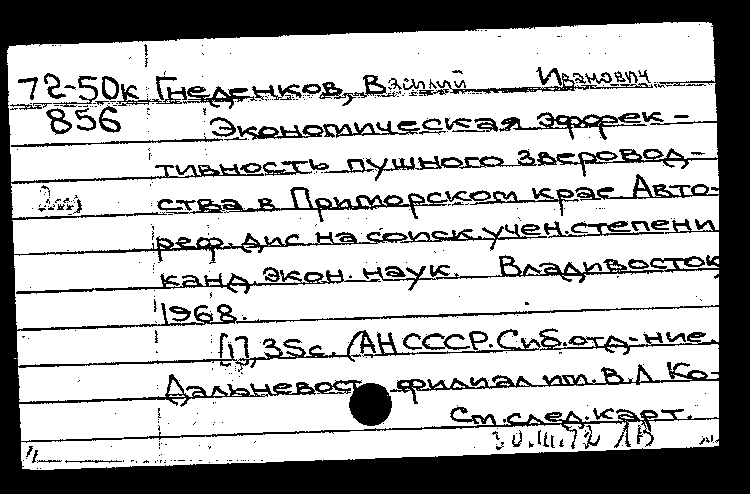 72-50к Гнеденков, Василий Иванович
856 Экономическая эффек-
тивность пушного зверовод-
ства в Приморском крае. Авто-
реф. дис. на соиск. учен. степени
канд. экон. наук. Владивосток,
1968.
[1], 35 с. (АН СССР. Сиб. отд-ние.
Дальневост. филиал им. В.Л. Ко-
См. след. карт.
30.III.72 ЛВ